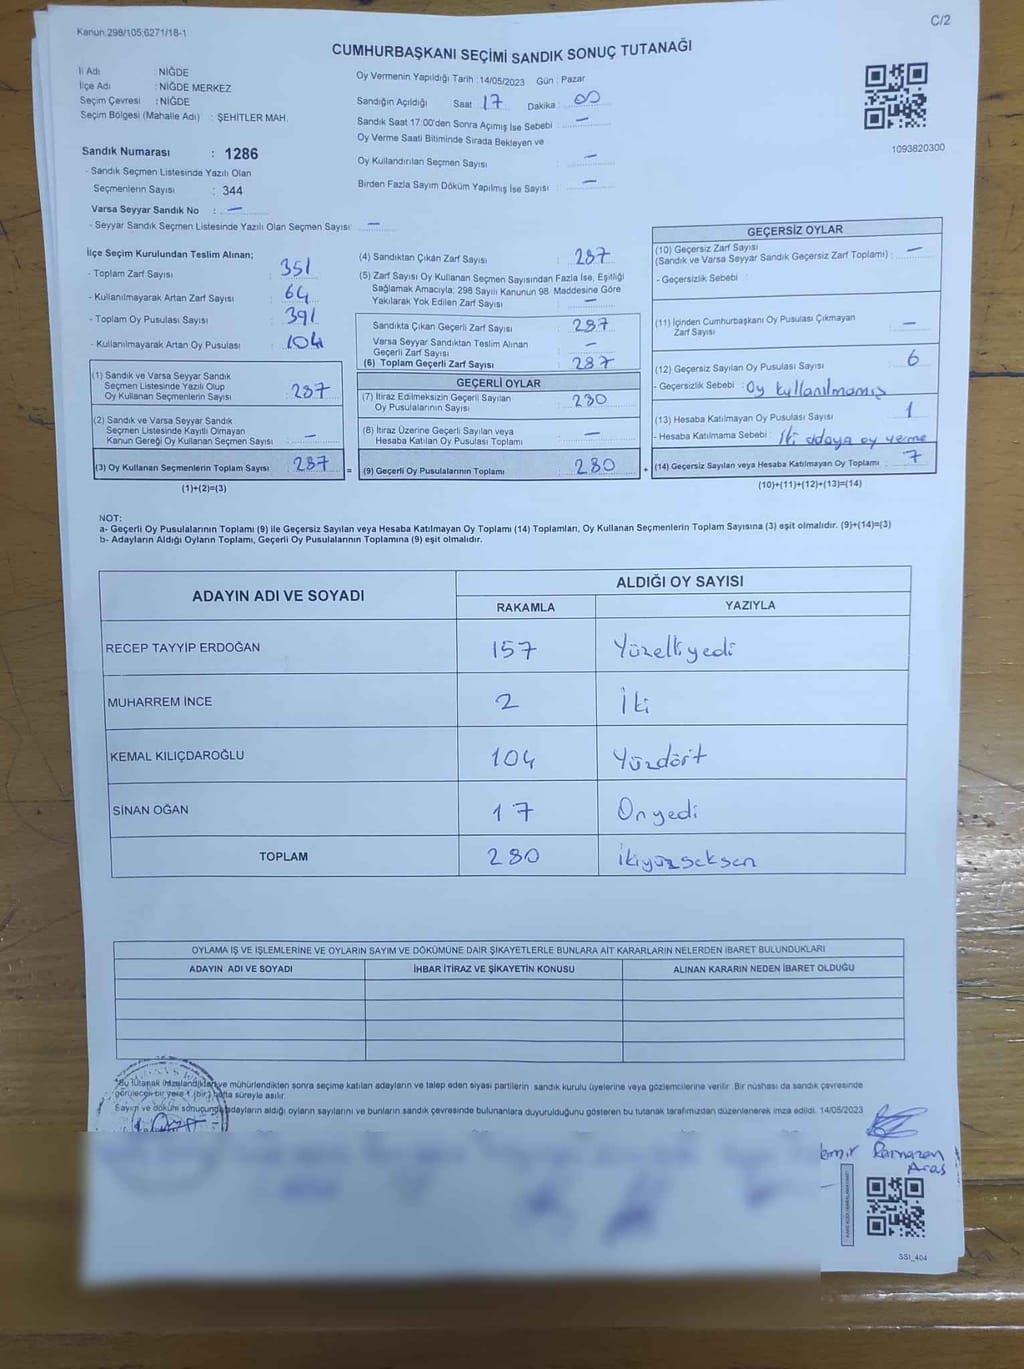 Kanun:298/105;6271/18-1
C/2
CUMHURBAŞKANI SEÇİMİ SANDIK SONUÇ TUTANAĞI
İl Adı : NİĞDE
İlçe Adı : NİĞDE MERKEZ
Seçim Çevresi : NİĞDE
Seçim Bölgesi (Mahalle Adı) : ŞEHİTLER MAH.
Oy Vermenin Yapıldığı Tarih :14/05/2023 Gün : Pazar
Sandığın Açıldığı Saat 17 Dakika : 00
Sandık Saat 17:00'den Sonra Açımış İse Sebebi : —
Oy Verme Saati Bitiminde Sırada Bekleyen ve
Oy Kullandırılan Seçmen Sayısı : —
Birden Fazla Sayım Döküm Yapılmış İse Sayısı : —
1093820300
Sandık Numarası : 1286
- Sandık Seçmen Listesinde Yazılı Olan
Seçmenlerin Sayısı : 344
Varsa Seyyar Sandık No : —
- Seyyar Sandık Seçmen Listesinde Yazılı Olan Seçmen Sayısı: —
İlçe Seçim Kurulundan Teslim Alınan;
- Toplam Zarf Sayısı : 351
- Kullanılmayarak Artan Zarf Sayısı : 64
- Toplam Oy Pusulası Sayısı : 391
- Kullanılmayarak Artan Oy Pusulası : 104
(1) Sandık ve Varsa Seyyar Sandık
Seçmen Listesinde Yazılı Olup
Oy Kullanan Seçmenlerin Sayısı : 287
(2) Sandık ve Varsa Seyyar Sandık
Seçmen Listesinde Kayıtlı Olmayan
Kanun Gereği Oy Kullanan Seçmen Sayısı : —
(3) Oy Kullanan Seçmenlerin Toplam Sayısı : 287
(1)+(2)=(3)
(4) Sandıktan Çıkan Zarf Sayısı : 287
(5) Zarf Sayısı Oy Kullanan Seçmen Sayısından Fazla İse, Eşitliği
Sağlamak Amacıyla; 298 Sayılı Kanunun 98. Maddesine Göre
Yakılarak Yok Edilen Zarf Sayısı : —
Sandıkta Çıkan Geçerli Zarf Sayısı : 287
Varsa Seyyar Sandıktan Teslim Alınan
Geçerli Zarf Sayısı : —
(6) Toplam Geçerli Zarf Sayısı : 287
GEÇERLİ OYLAR
(7) İtiraz Edilmeksizin Geçerli Sayılan
Oy Pusulalarının Sayısı : 280
(8) İtiraz Üzerine Geçerli Sayılan veya
Hesaba Katılan Oy Pusulası Toplamı : —
= (9) Geçerli Oy Pusulalarının Toplamı : 280 +
GEÇERSİZ OYLAR
(10) Geçersiz Zarf Sayısı
(Sandık ve Varsa Seyyar Sandık Geçersiz Zarf Toplamı) : —
- Geçersizlik Sebebi :
(11) İçinden Cumhurbaşkanı Oy Pusulası Çıkmayan
Zarf Sayısı : —
(12) Geçersiz Sayılan Oy Pusulası Sayısı : 6
- Geçersizlik Sebebi : Oy kullanılmamış
(13) Hesaba Katılmayan Oy Pusulası Sayısı : 1
- Hesaba Katılmama Sebebi : İki adaya oy verme
(14) Geçersiz Sayılan veya Hesaba Katılmayan Oy Toplamı : 7
(10)+(11)+(12)+(13)=(14)
NOT:
a- Geçerli Oy Pusulalarının Toplamı (9) ile Geçersiz Sayılan veya Hesaba Katılmayan Oy Toplamı (14) Toplamları, Oy Kullanan Seçmenlerin Toplam Sayısına (3) eşit olmalıdır. (9)+(14)=(3)
b- Adayların Aldığı Oyların Toplamı, Geçerli Oy Pusulalarının Toplamına (9) eşit olmalıdır.
ADAYIN ADI VE SOYADI ALDIĞI OY SAYISI
RAKAMLA YAZIYLA
RECEP TAYYİP ERDOĞAN 157 Yüzelliyedi
MUHARREM İNCE 2 İki
KEMAL KILIÇDAROĞLU 104 Yüzdört
SİNAN OĞAN 17 Onyedi
TOPLAM 280 İkiyüzseksen
OYLAMA İŞ VE İŞLEMLERİNE VE OYLARIN SAYIM VE DÖKÜMÜNE DAİR ŞİKAYETLERLE BUNLARA AİT KARARLARIN NELERDEN İBARET BULUNDUKLARI
ADAYIN ADI VE SOYADI İHBAR İTİRAZ VE ŞİKAYETİN KONUSU ALINAN KARARIN NEDEN İBARET OLDUĞU
*Bu tutanak imzalandıktan ve mühürlendikten sonra seçime katılan adayların ve talep eden siyasi partilerin sandık kurulu üyelerine veya gözlemcilerine verilir. Bir nüshası da sandık çevresinde
görülecek bir yere 1 (bir) hafta süreyle asılır.
Sayım ve dökümü sonucunda adayların aldığı oyların sayılarını ve bunların sandık çevresinde bulunanlara duyurulduğunu gösteren bu tutanak tarafımızdan düzenlenerek imza edildi. 14/05/2023
Ramazan
Aras
SSI_404